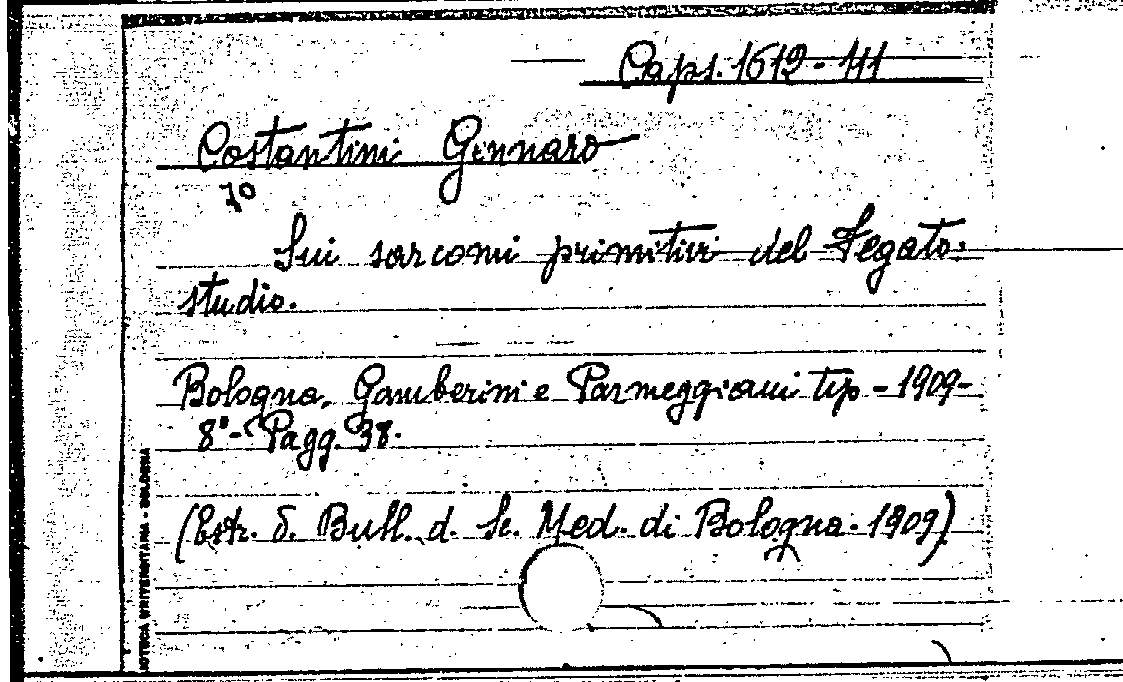 Caps. 1612 - 111
Costantini Gennaro
70
Sui sarcomi primitivi del Fegato:
studio.
Bologna. Gamberini e Parmeggiani tip - 1909 -
8° - Pagg. 38.
(Estr. d. Bull. d. Sc. Med. di Bologna. 1909)
OTECA UNIVERSITARIA - BOLOGNA